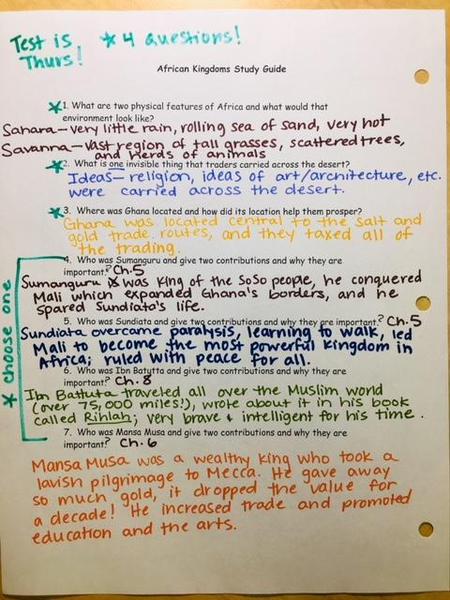 Test is
Thurs!
* 4 questions!
African Kingdoms Study Guide
* 1. What are two physical features of Africa and what would that
environment look like?
Sahara—very little rain, rolling sea of sand, very hot
Savanna—vast region of tall grasses, scattered trees,
and herds of animals
* 2. What is one invisible thing that traders carried across the desert?
Ideas—religion, ideas of art/architecture, etc.
were carried across the desert.
* 3. Where was Ghana located and how did its location help them prosper?
Ghana was located central to the salt and
gold trade routes, and they taxed all of
the trading.
* choose one
4. Who was Sumanguru and give two contributions and why they are
important? Ch.5
Sumanguru was King of the SoSo people, he conquered
Mali which expanded Ghana's borders, and he
spared Sundiata's life.
5. Who was Sundiata and give two contributions and why they are important? Ch.5
Sundiata overcame paralysis, learning to walk, led
Mali to become the most powerful kingdom in
Africa; ruled with peace for all.
6. Who was Ibn Batutta and give two contributions and why they are
important? Ch.8
Ibn Battuta traveled all over the Muslim world
(over 75,000 miles!), wrote about it in his book
called Rihlah; very brave + intelligent for his time.
7. Who was Mansa Musa and give two contributions and why they are
important? Ch.6
Mansa Musa was a wealthy king who took a
lavish pilgrimage to Mecca. He gave away
so much gold, it dropped the value for
a decade! He increased trade and promoted
education and the arts.